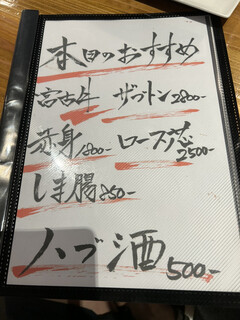 本日のおすすめ
宮古牛 ザブトン 2800-
赤身 1800- ロース芯 2500-
しま腸 850-
ハブ酒 500-